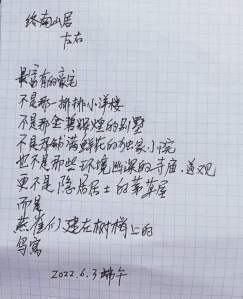 终南山居
左右
最富有的豪宅
不是那一排排小洋楼
不是那金碧辉煌的别墅
不是开铺满鲜花的独家小院
也不是那些环境幽深的寺庙、道观
更不是隐居居士的茅草屋
而是
燕雀们建在树梢上的
鸟窝
2022.6.3端午